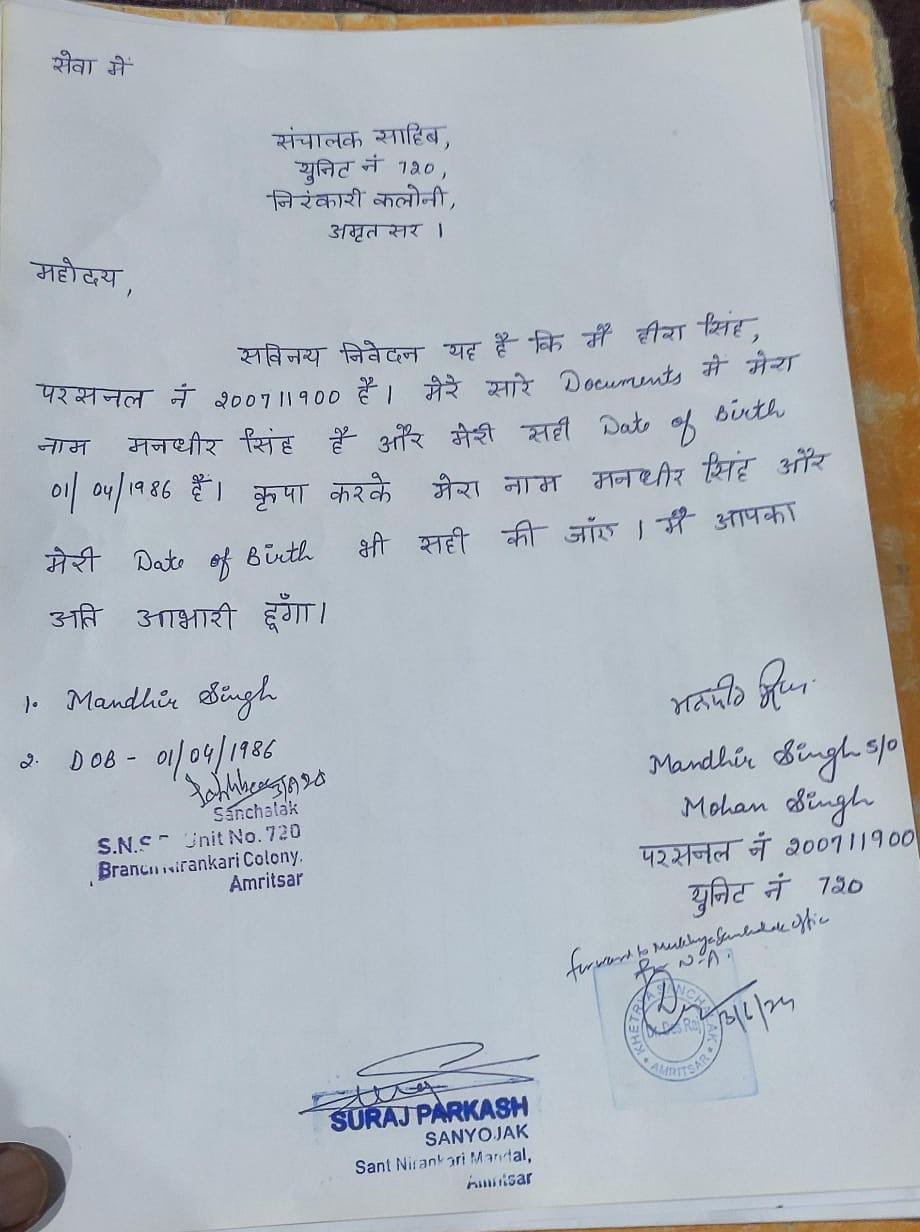 सेवा में
संचालक साहिब,
युनिट नं 720,
निरंकारी कलोनी,
अमृतसर ।
महोदय,
सविनय निवेदन यह है कि मैं हीरा सिंह,
परसनल नं 200711900 है। मेरे सारे Documents में मेरा
नाम मनधीर सिंह है और मेरी सही Date of Birth
01/04/1986 है। कृपा करके मेरा नाम मनधीर सिंह और
मेरी Date of Birth भी सही की जाँए । मैं आपका
अति आभारी हूँगा।
1. Mandhir Singh
2. DOB - 01/04/1986
Sanchalak
Unit No. 720
Branch Nirankari Colony,
Amritsar
ਮਨਧੀਰ ਸਿੰਘ
Mandhir Singh S/O
Mohan Singh
परसनल नं 200711900
युनिट नं 720
forward to Mukhya Sanchalak Office
for N.A.
KHETRIYA SANCHALAK
Dr. Des Raj
AMRITSAR
SURAJ PARKASH
SANYOJAK
Sant Nirankari Mandal,
Amritsar